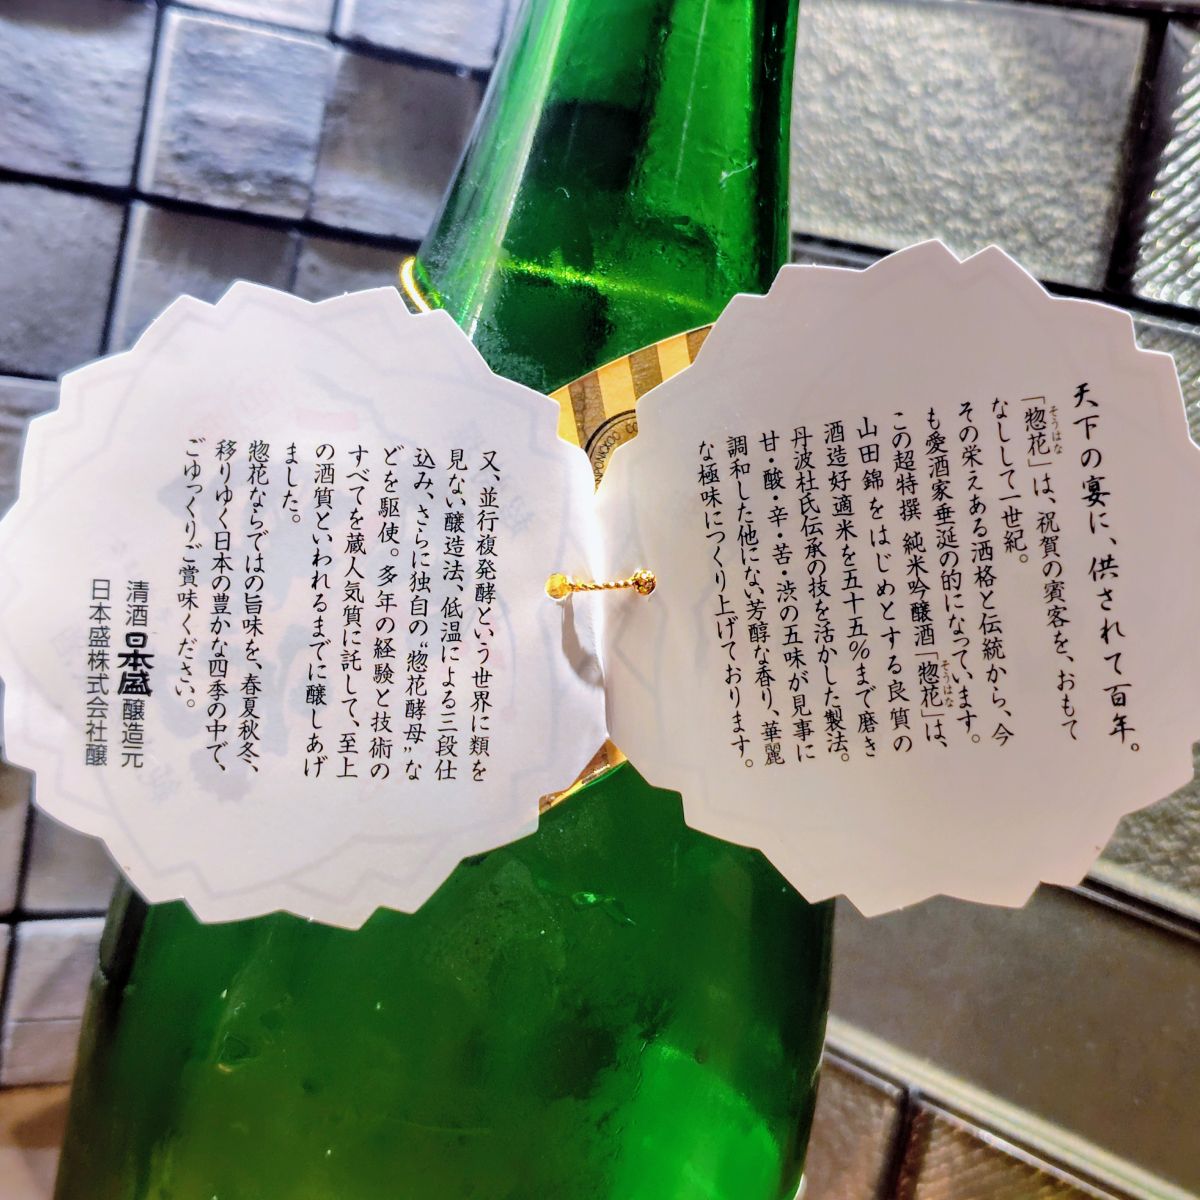 天下の宴に、供されて百年。
「惣花」は、祝賀の賓客を、おもて
そうはな
なしして一世紀。
その栄えある酒格と伝統から、今
も愛酒家垂涎の的になっています。
この超特撰 純米吟醸酒「惣花」は、
そうはな
山田錦をはじめとする良質の
酒造好適米を五十五%まで磨き
丹波杜氏伝承の技を活かした製法。
甘・酸・辛・苦・渋の五味が見事に
調和した他にない芳醇な香り、華麗
な極味につくり上げております。
又、並行複発酵という世界に類を
見ない醸造法、低温による三段仕
込み、さらに独自の“惣花酵母”な
どを駆使。多年の経験と技術の
すべてを蔵人気質に託して、至上
の酒質といわれるまでに醸しあげ
ました。
惣花ならではの旨味を、春夏秋冬、
移りゆく日本の豊かな四季の中で、
ごゆっくりご賞味ください。
清酒 日本盛 醸造元
日本盛株式会社醸